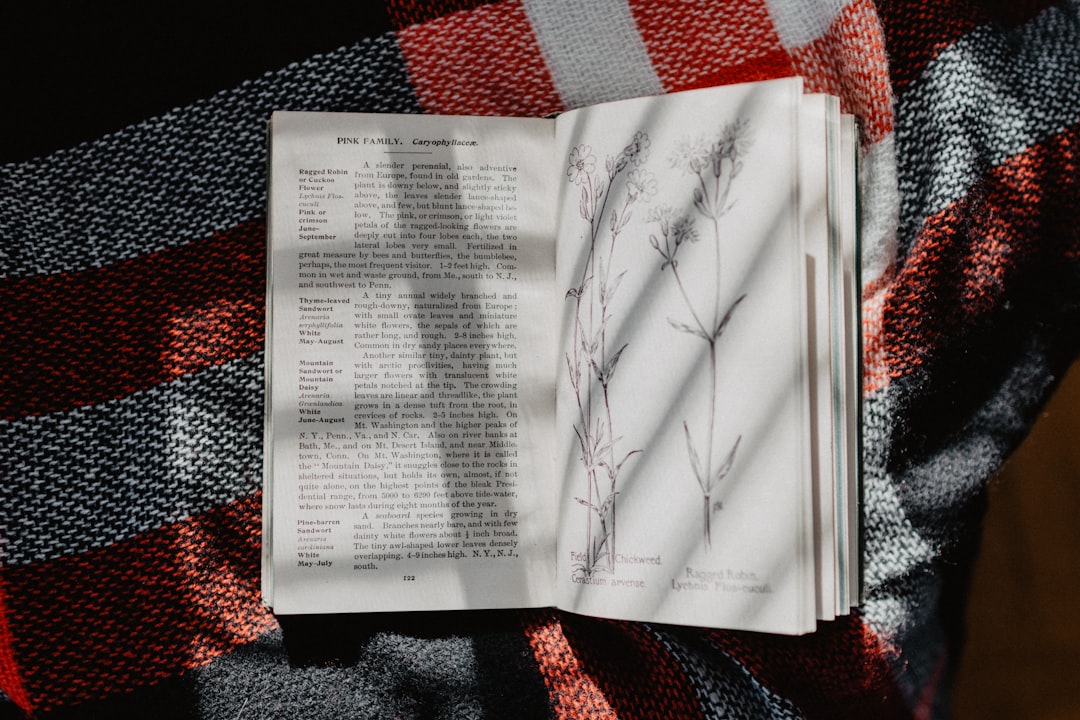 PINK FAMILY. Caryophyllaceæ.
Ragged Robin
or Cuckoo
Flower
Lychnis Flos-
cuculi
Pink or
crimson
June-
September
A slender perennial, also adventive
from Europe, found in old gardens. The
plant is downy below, and slightly sticky
above, the leaves slender lance-shaped
above, and few, but blunt lance-shaped be-
low. The pink, or crimson, or light violet
petals of the ragged-looking flowers are
deeply cut into four lobes each, the two
lateral lobes very small. Fertilized in
great measure by bees and butterflies, the bumblebee,
perhaps, the most frequent visitor. 1-2 feet high. Com-
mon in wet and waste ground, from Me., south to N. J.,
and southwest to Penn.
Thyme-leaved
Sandwort
Arenaria
serpyllifolia
White
May-August
A tiny annual widely branched and
rough-downy, naturalized from Europe;
with small ovate leaves and miniature
white flowers, the sepals of which are
rather long, and rough. 2-8 inches high.
Common in dry sandy places everywhere.
Mountain
Sandwort or
Mountain
Daisy
Arenaria
Grœnlandica
White
June-August
Another similar tiny, dainty plant, but
with arctic proclivities, having much
larger flowers with translucent white
petals notched at the tip. The crowding
leaves are linear and threadlike, the plant
grows in a dense tuft from the root, in
crevices of rocks. 2-5 inches high. On
Mt. Washington and the higher peaks of
N. Y., Penn., Va., and N. Car. Also on river banks at
Bath, Me., and on Mt. Desert Island, and near Middle-
town, Conn. On Mt. Washington, where it is called
the "Mountain Daisy," it snuggles close to the rocks in
sheltered situations, but holds its own, almost, if not
quite alone, on the highest points of the bleak Presi-
dential range, from 5000 to 6290 feet above tide-water,
where snow lasts during eight months of the year.
Pine-barren
Sandwort
Arenaria
caroliniana
White
May-July
A seaboard species growing in dry
sand. Branches nearly bare, and with few
dainty white flowers about ½ inch broad.
The tiny awl-shaped lower leaves densely
overlapping. 4-9 inches high. N. Y., N. J.,
south.
122
Field Chickweed.
Cerastium arvense.
Ragged Robin.
Lychnis Flos-cuculi.